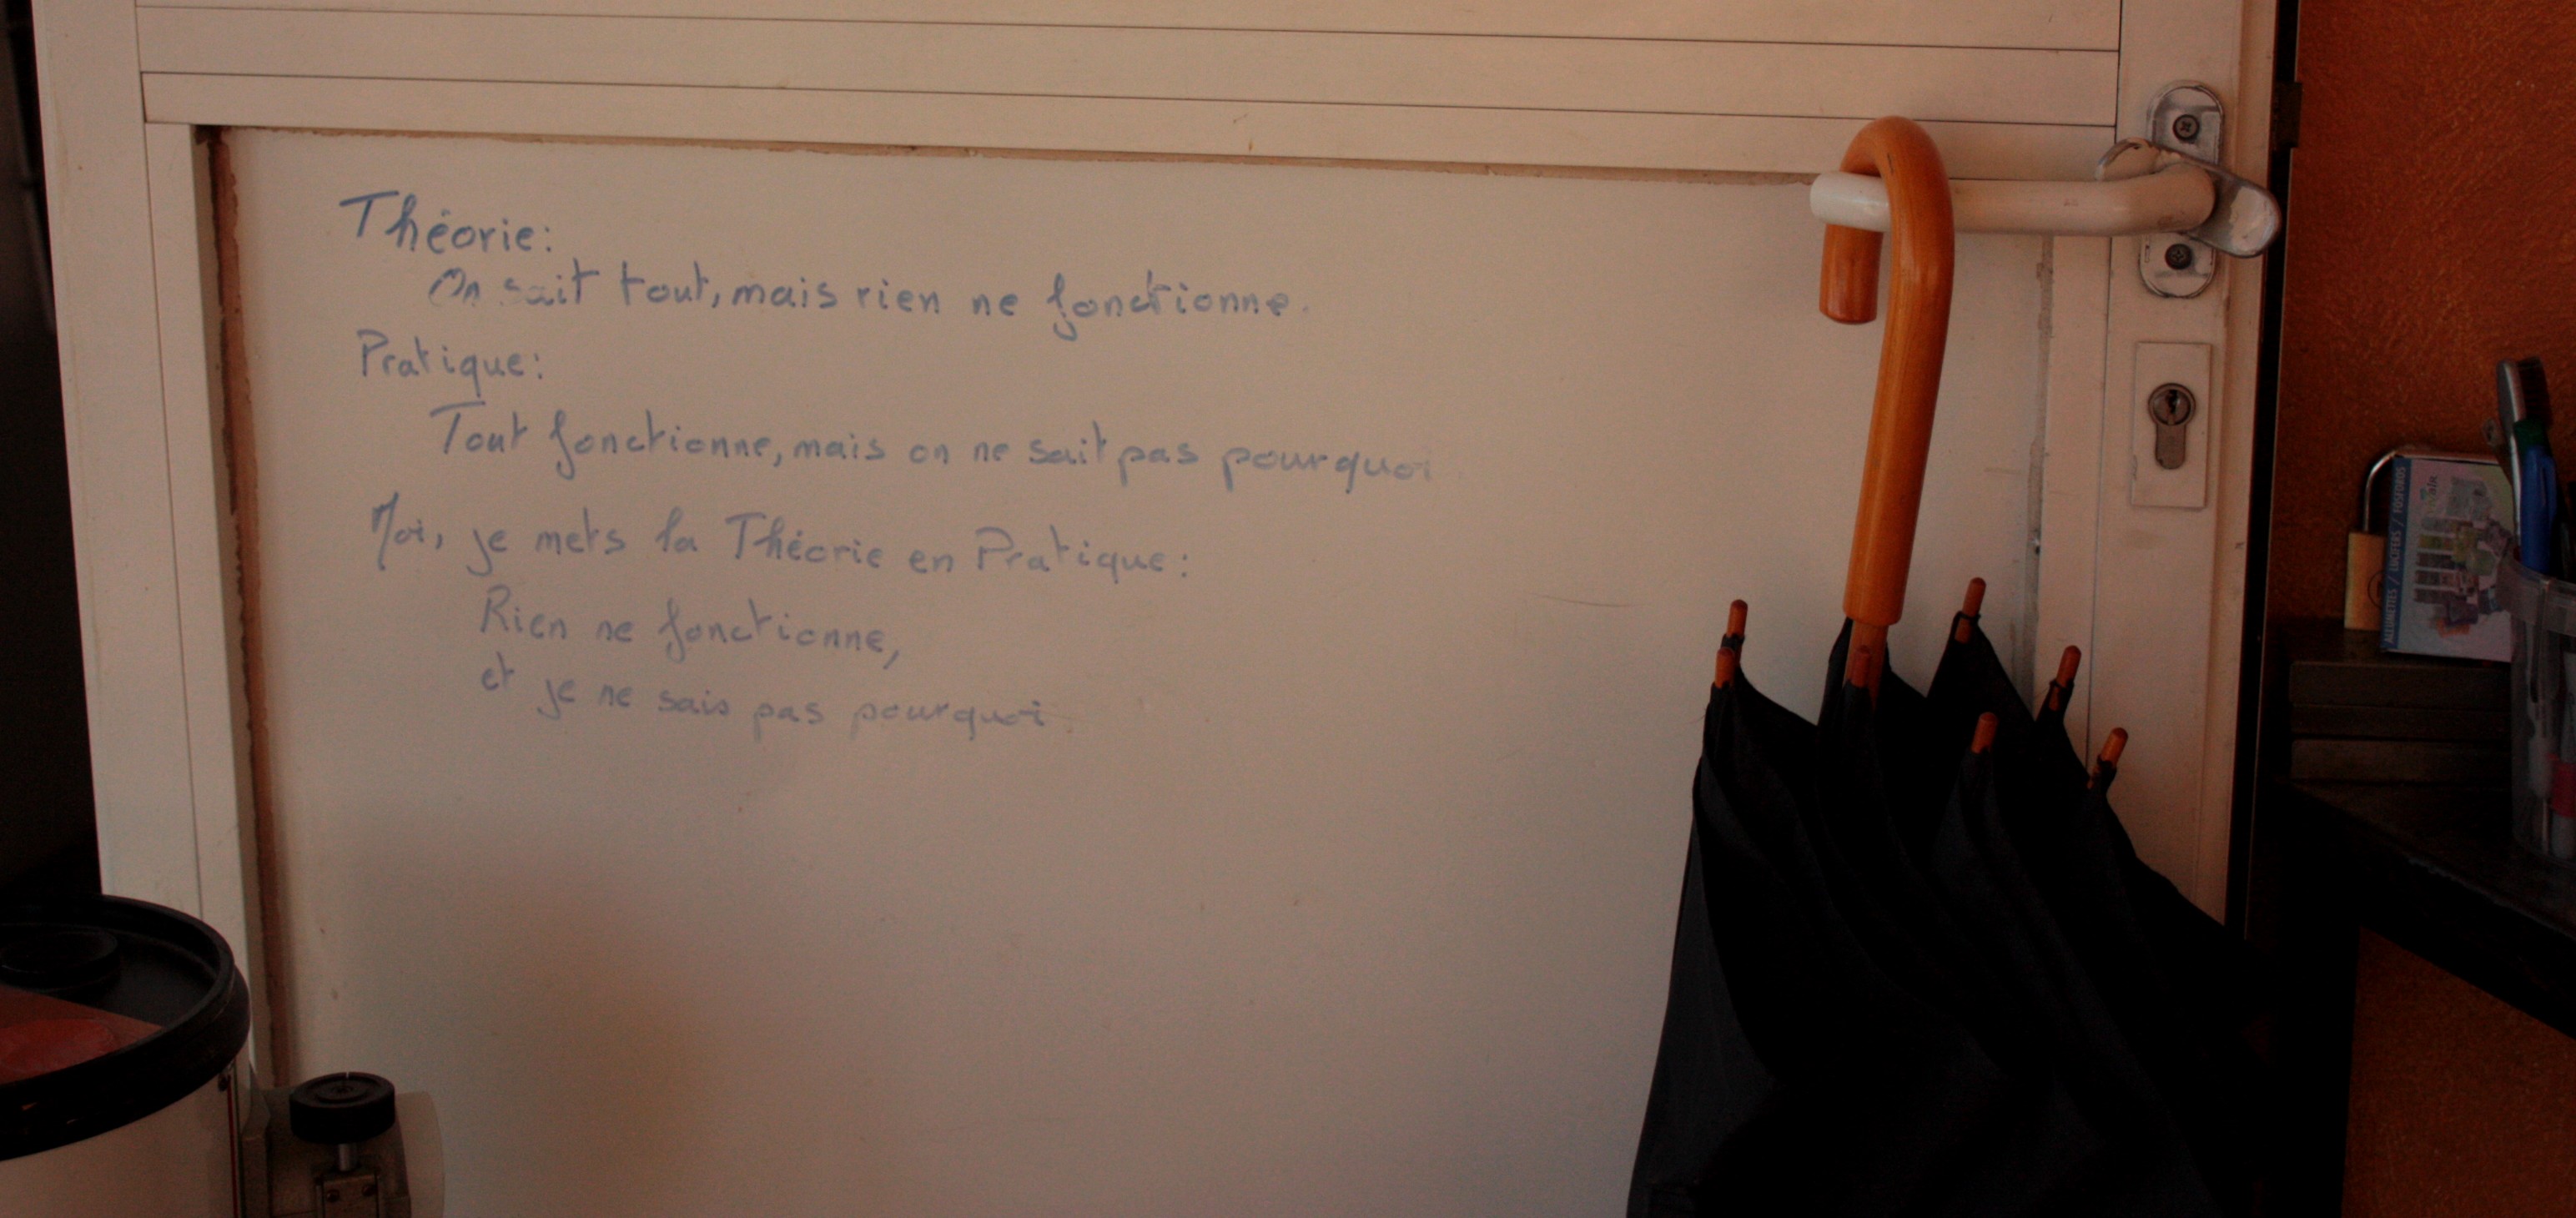 Théorie:
On sait tout, mais rien ne fonctionne.
Pratique:
Tout fonctionne, mais on ne sait pas pourquoi
Moi, je mets la Théorie en Pratique:
Rien ne fonctionne,
et je ne sais pas pourquoi.
ALLUMETTES / LUCIFERS / FOSFOROS